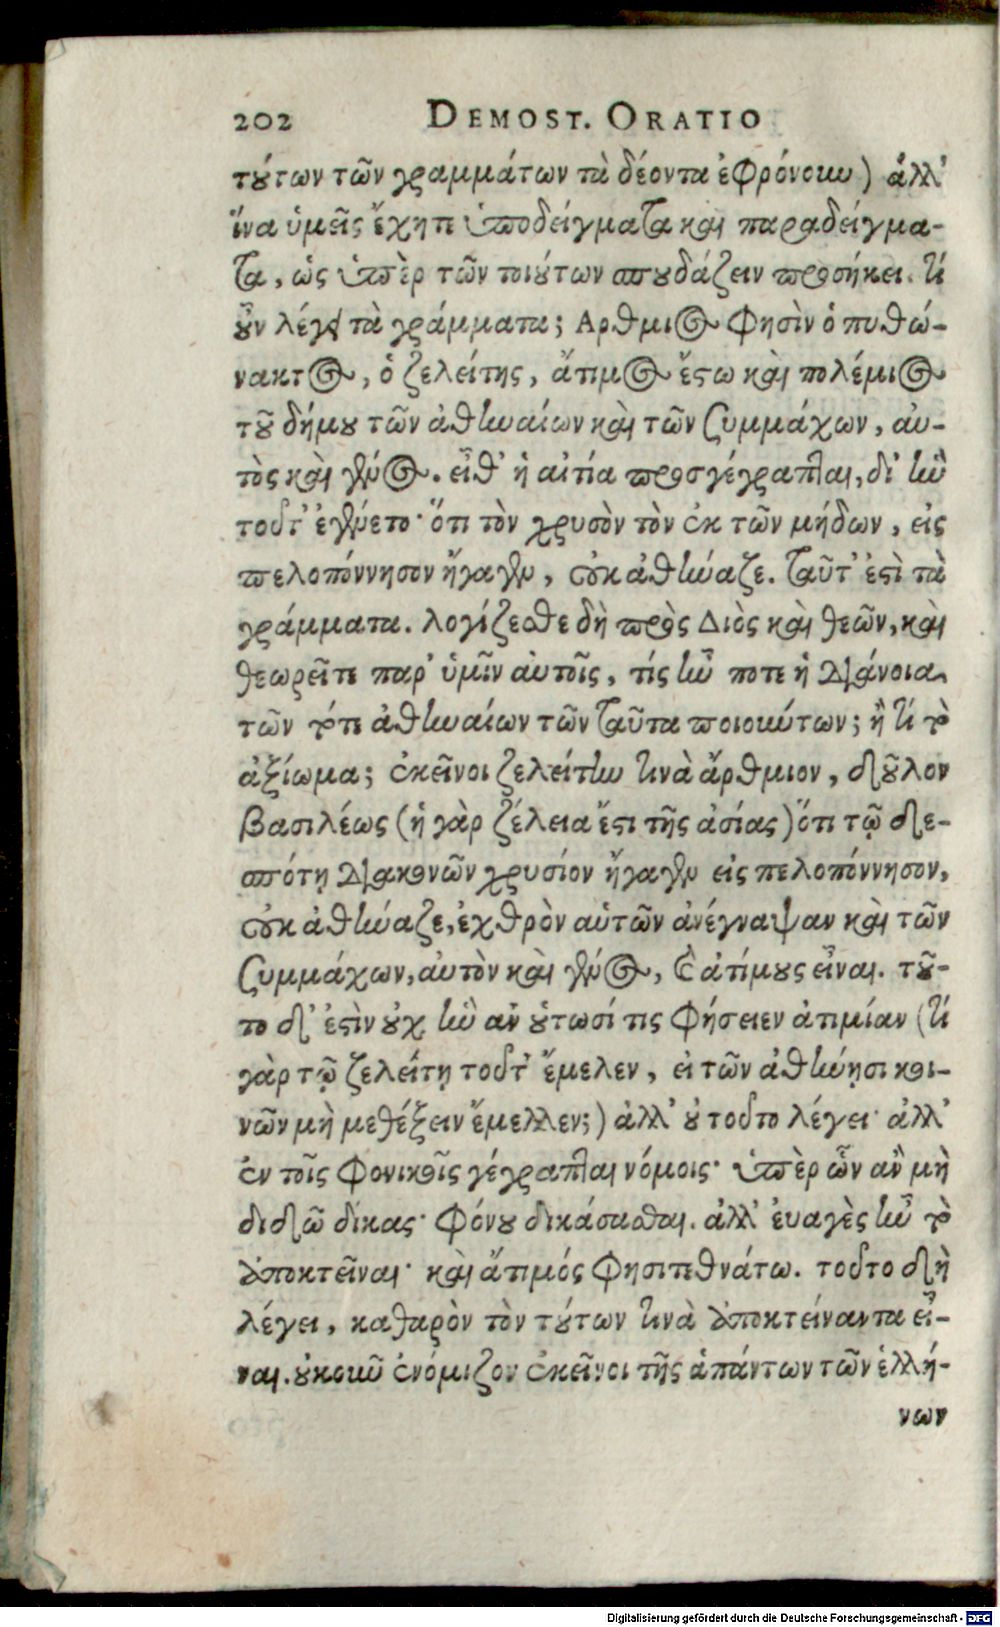 202 DEMOST. ORATIO
τούτων τῶν γραμμάτων τὰ δέοντα ἐφρόνουν) ἀλλ'
ἵνα ὑμεῖς ἔχητε ὑποδείγματα καὶ παραδείγμα-
τα, ὡς ὑπὲρ τῶν τοιούτων σπουδάζειν προσήκει. τί
οὖν λέγει τὰ γράμματα; Αρθμιος φησὶν ὁ πυθώ-
νακτος, ὁ ζελείτης, ἄτιμος ἔστω καὶ πολέμιος
τοῦ δήμου τῶν ἀθηναίων καὶ τῶν συμμάχων, αὐ-
τὸς καὶ γένος. εἶθ' ἡ αἰτία προσγέγραπται, δι' ἣν
τοῦτ' ἐγένετο· ὅτι τὸν χρυσὸν τὸν ἐκ τῶν μήδων, εἰς
πελοπόννησον ἤγαγεν, οὐκ ἀθήναζε. ταῦτ' ἐστὶ τὰ
γράμματα. λογίζεσθε δὴ πρὸς Διὸς καὶ θεῶν, καὶ
θεωρεῖτε παρ' ὑμῖν αὐτοῖς, τίς ἦν ποτε ἡ διάνοια
τῶν τότε ἀθηναίων τῶν ταῦτα ποιούντων; ἢ τί τὸ
ἀξίωμα; ἐκεῖνοι ζελείτην τινὰ ἄρθμιον, δοῦλον
βασιλέως (ἡ γὰρ ζέλεια ἔστι τῆς ἀσίας) ὅτι τῷ δε-
σπότῃ διακονῶν χρυσίον ἤγαγεν εἰς πελοπόννησον,
οὐκ ἀθήναζε, ἐχθρὸν αὑτῶν ἀνέγραψαν καὶ τῶν
συμμάχων, αὐτὸν καὶ γένος, καὶ ἀτίμους εἶναι. τοῦ-
το δ' ἐστὶν οὐχ ἣν ἂν οὑτωσί τις φήσειεν ἀτιμίαν (τί
γὰρ τῷ ζελείτῃ τοῦτ' ἔμελεν, εἰ τῶν ἀθήνῃσι κοι-
νῶν μὴ μεθέξειν ἔμελλεν;) ἀλλ' οὐ τοῦτο λέγει· ἀλλ'
ἐν τοῖς φονικοῖς γέγραπται νόμοις· ὑπὲρ ὧν ἂν μὴ
διδῶ δίκας· φόνου δικάσασθαι. ἀλλ' εὐαγὲς ἦν τὸ
ἀποκτεῖναι· καὶ ἄτιμός φησι τεθνάτω. τοῦτο δὴ
λέγει, καθαρὸν τὸν τούτων τινὰ ἀποκτείναντα εἶ-
ναι. οὐκοῦν ἐνόμιζον ἐκεῖνοι τῆς ἁπάντων τῶν ἑλλή-
νων
Digitalisierung gefördert durch die Deutsche Forschungsgemeinschaft - DFG